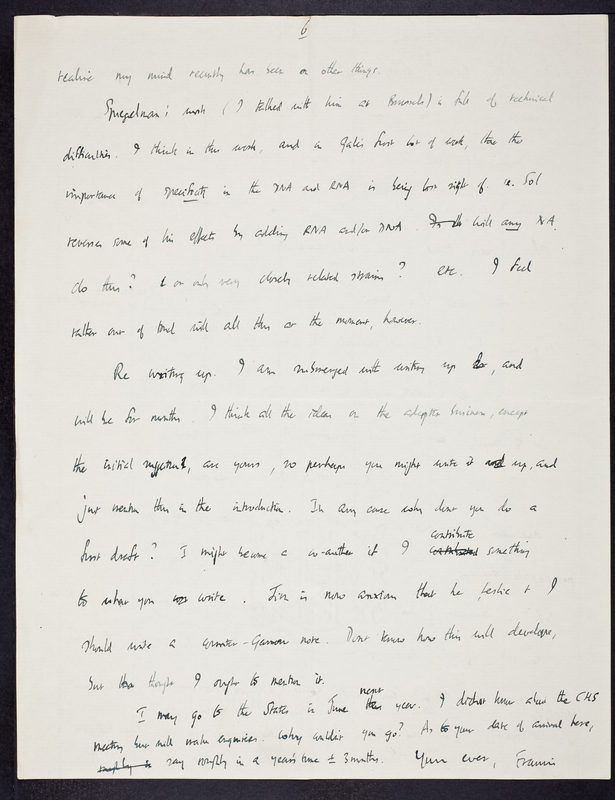 6
realise my mind recently has been on other things.
Spiegelman's work (I talked with him at Brussels) is full of technical
difficulties. I think in this work, and in Gale's first lot of work, that the
importance of specificity in the DNA and RNA is being lost sight of. i.e. Sol
reverses some of his effects by adding RNA and/or DNA. Will any NA
do this? or only very closely related strains? etc. I feel
rather out of touch with all this at the moment, however.
Re writing up. I am submerged with writing up, and
will be for months. I think all the ideas on the adaptor business, except
the initial suggestion, are yours, so perhaps you might write it up, and
just mention this in the introduction. In any case why dont you do a
first draft? I might become a co-author if I contribute something
to what you write. Jim is now anxious that he, Leslie + I
should write a counter-Gamow note. Dont know how this will develope,
but thought I ought to mention it.
I may go to the States in June next year. I didnt know about the CHS
meeting but will make enquiries. Why wouldnt you go? As to your date of arrival here,
say roughly in a year's time ± 3 months. Yours ever, Francis